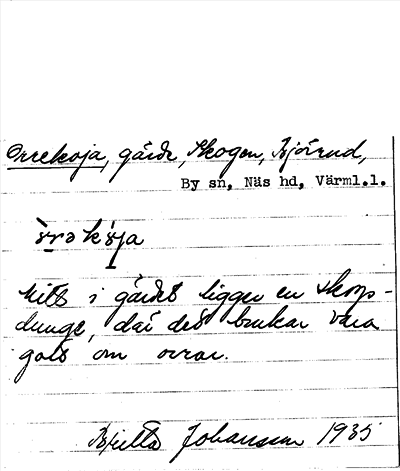 Orrekoja, gärde, Skogen, Björnrud,
By sn, Näs hd, Värml.l.
òrǝkö́ja
Mitt i gärdet ligger en skogs-
dunge, där det brukar vara
gott om orrar.
Britta Johansson 1935